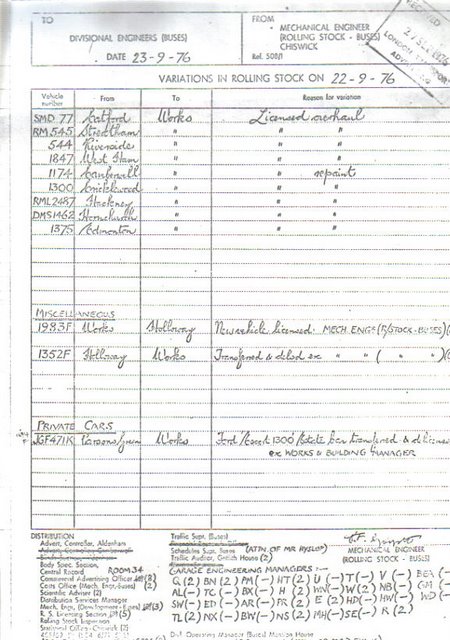 TO
FROM
DIVISIONAL ENGINEERS (BUSES)
MECHANICAL ENGINEER
(ROLLING STOCK - BUSES)
CHISWICK
DATE 23-9-76
Ref. 508/1
RECEIVED
LONDON
VARIATIONS IN ROLLING STOCK ON 22-9-76
Vehicle number From To Reason for variation
SMD 77 Catford Works Licensed overhaul
RM 545 Streatham " " "
544 Riverside " " "
1847 West Ham " " "
1174 Camberwell " " repaint
1300 Cricklewood " " "
RML 2487 Hackney " " "
DMS 1462 Hornchurch " " "
1375 Edmonton " " "
MISCELLANEOUS
1983F Works Holloway New vehicle licensed. MECH ENGR (R/STOCK-BUSES)
1352F Holloway Works Transferred & delcd ex " " ( " "
PRIVATE CARS
JGF471K Parsons Green Works Ford Escort 1300 Estate car transferred & dlicensed
ex WORKS & BUILDING MANAGER
DISTRIBUTION
Advert. Controller, Aldenham
Body Spec. Section,
Central Record ROOM 34
Commercial Advertising Officer (2)
Costs Office (Mech. Engr.-Buses) (2)
Scientific Adviser (2)
Distribution Services Manager
Mech. Engr. (Development - Buses) (3)
R. S. Licensing Section
Statistical Office - Chiswick (2)
Traffic Supt. (Buses)
Schedules Supt. Buses (ATTN. OF MR HYSLOP)
Traffic Auditor, Griffith House (2)
MECHANICAL ENGINEER
(ROLLING STOCK - BUSES)
GARAGE ENGINEERING MANAGERS:-
Q (2) BN (2) PM (-) HT (2) U (-) T (-) V (-)
AL (-) TC (-) BX (-) H (2) WN (-) W (2) NB (-) GM (-)
SW (-) ED (-) AR (-) FR (2) E (2) HD (-) HW (-) WD (-)
TL (2) NX (-) BW (-) NS (2) MH (-) SE (-) R (2)